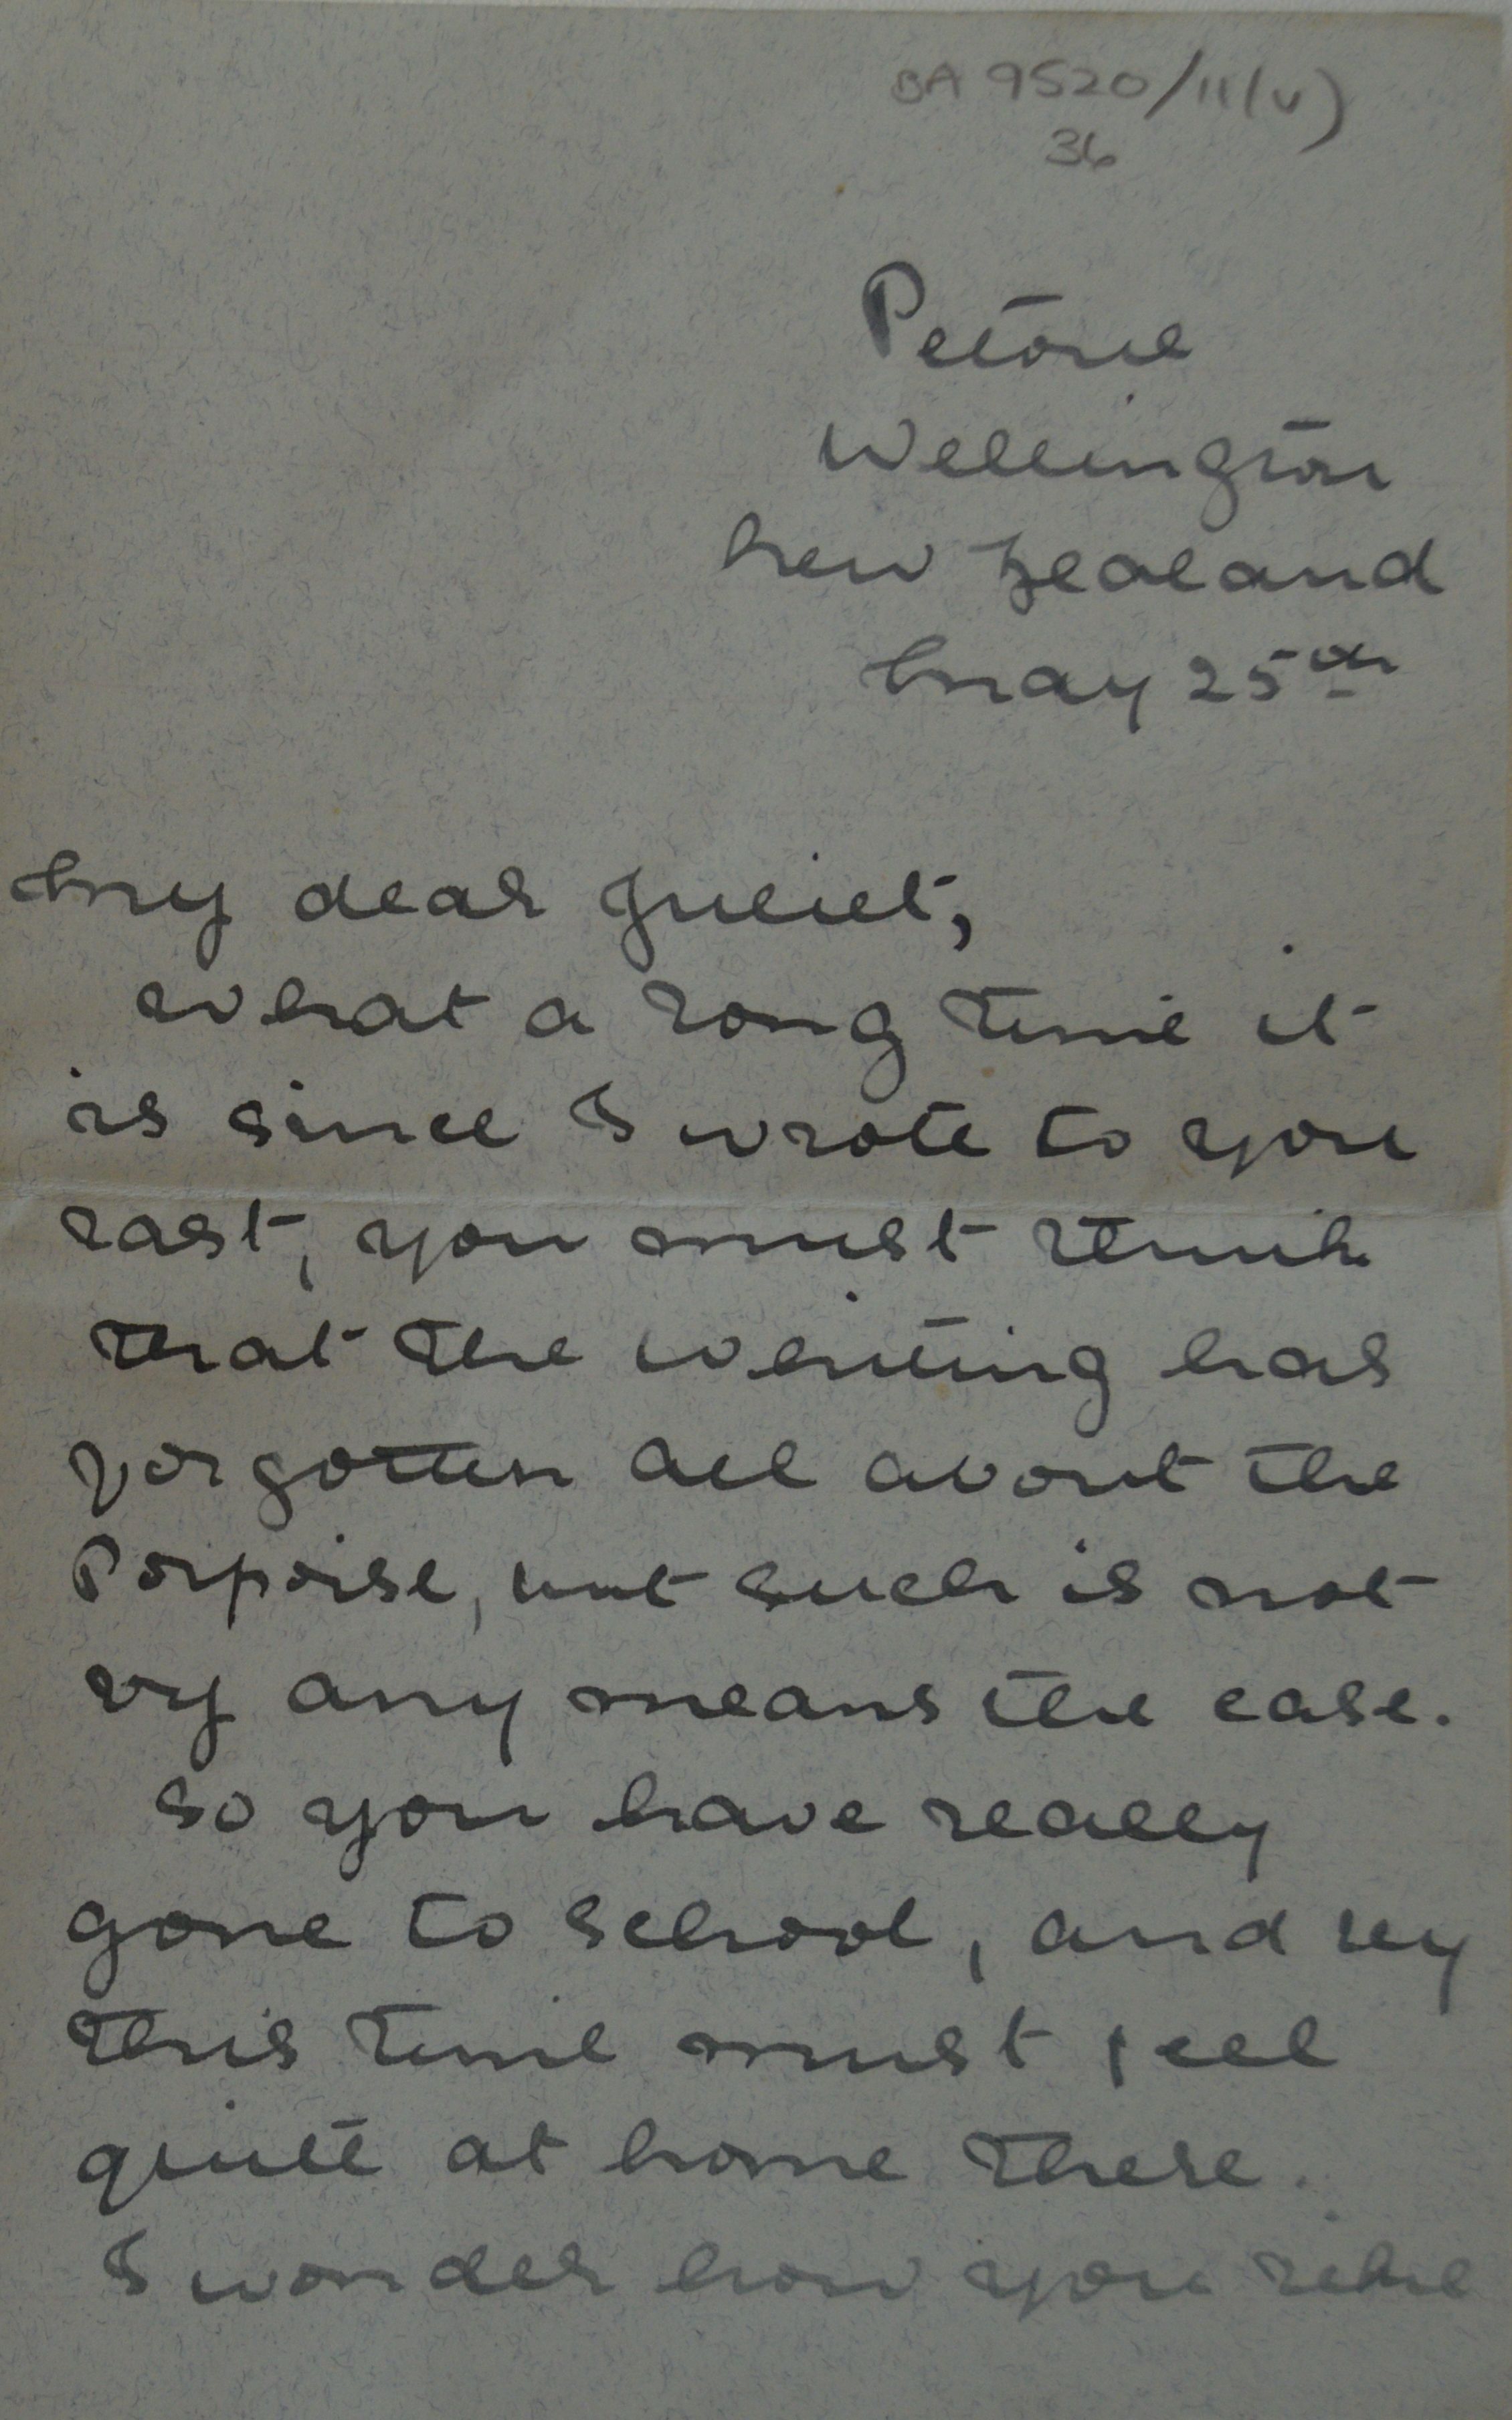 BA 9520/11(v)
36
Petone
Wellington
New Zealand
May 25th
My dear Juliet,
What a long time it
is since I wrote to you
last, you must think
that the Whiting has
forgotten all about the
Porpoise, but such is not
by any means the case.
So you have really
gone to school, and by
this time must feel
quite at home there.
I wonder how you like